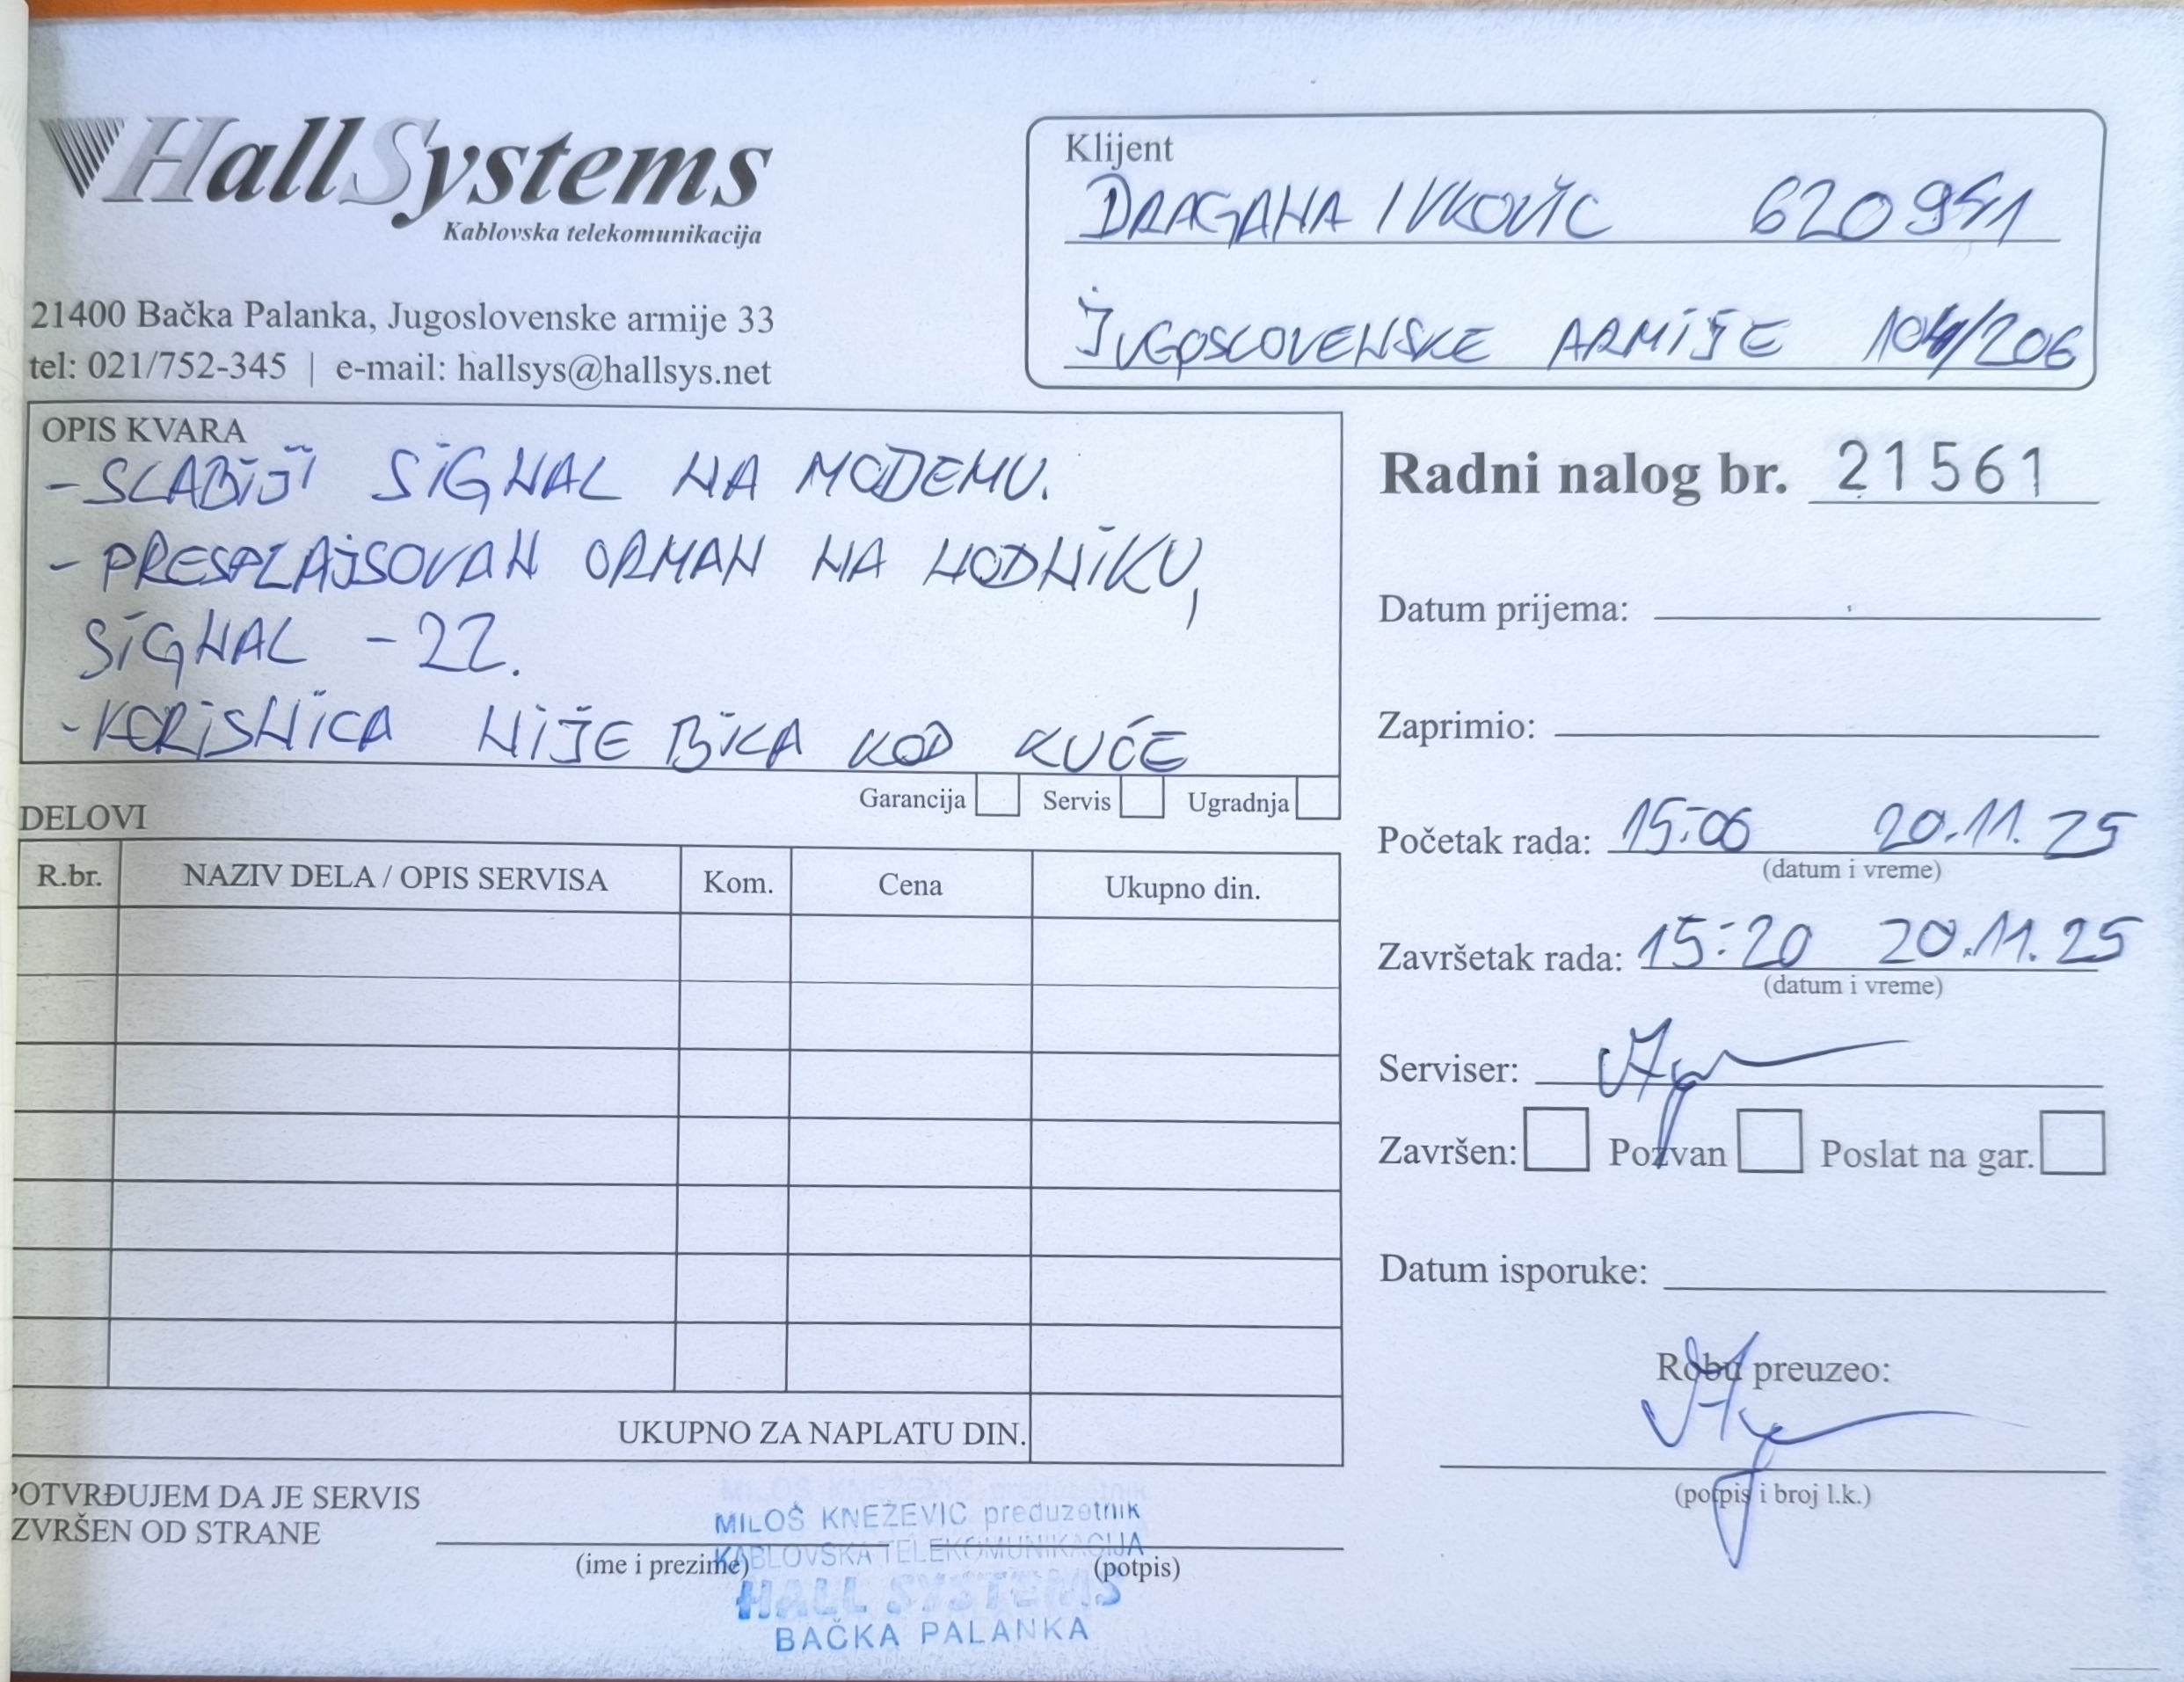 HallSystems
Kablovska telekomunikacija
21400 Bačka Palanka, Jugoslovenske armije 33
tel: 021/752-345 | e-mail: hallsys@hallsys.net
Klijent
DRAGANA IVKOVIĆ 620951
JUGOSLOVENSKE ARMIJE 104/206
OPIS KVARA
- SLABIJI SIGNAL NA MODEMU.
- PRESPLAJSOVAN ORMAN NA HODNIKU,
SIGNAL -22.
- KORISNICA NIJE BILA KOD KUĆE
Garancija Servis Ugradnja
Radni nalog br. 21561
Datum prijema:
Zaprimio:
Početak rada: 15:06 20.11.25
(datum i vreme)
Završetak rada: 15:20 20.11.25
(datum i vreme)
Serviser:
Završen: Pozvan Poslat na gar.
Datum isporuke:
Robu preuzeo:
(potpis i broj l.k.)
DELOVI
R.br. NAZIV DELA / OPIS SERVISA Kom. Cena Ukupno din.
UKUPNO ZA NAPLATU DIN.
POTVRĐUJEM DA JE SERVIS
ZVRŠEN OD STRANE
(ime i prezime) (potpis)
MILOŠ KNEŽEVIĆ preduzetnik
KABLOVSKA TELEKOMUNIKACIJA
HALL SYSTEMS
BAČKA PALANKA